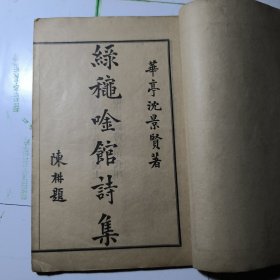 華亭沈景賢著
綠龝唫館詩集
陳栩題